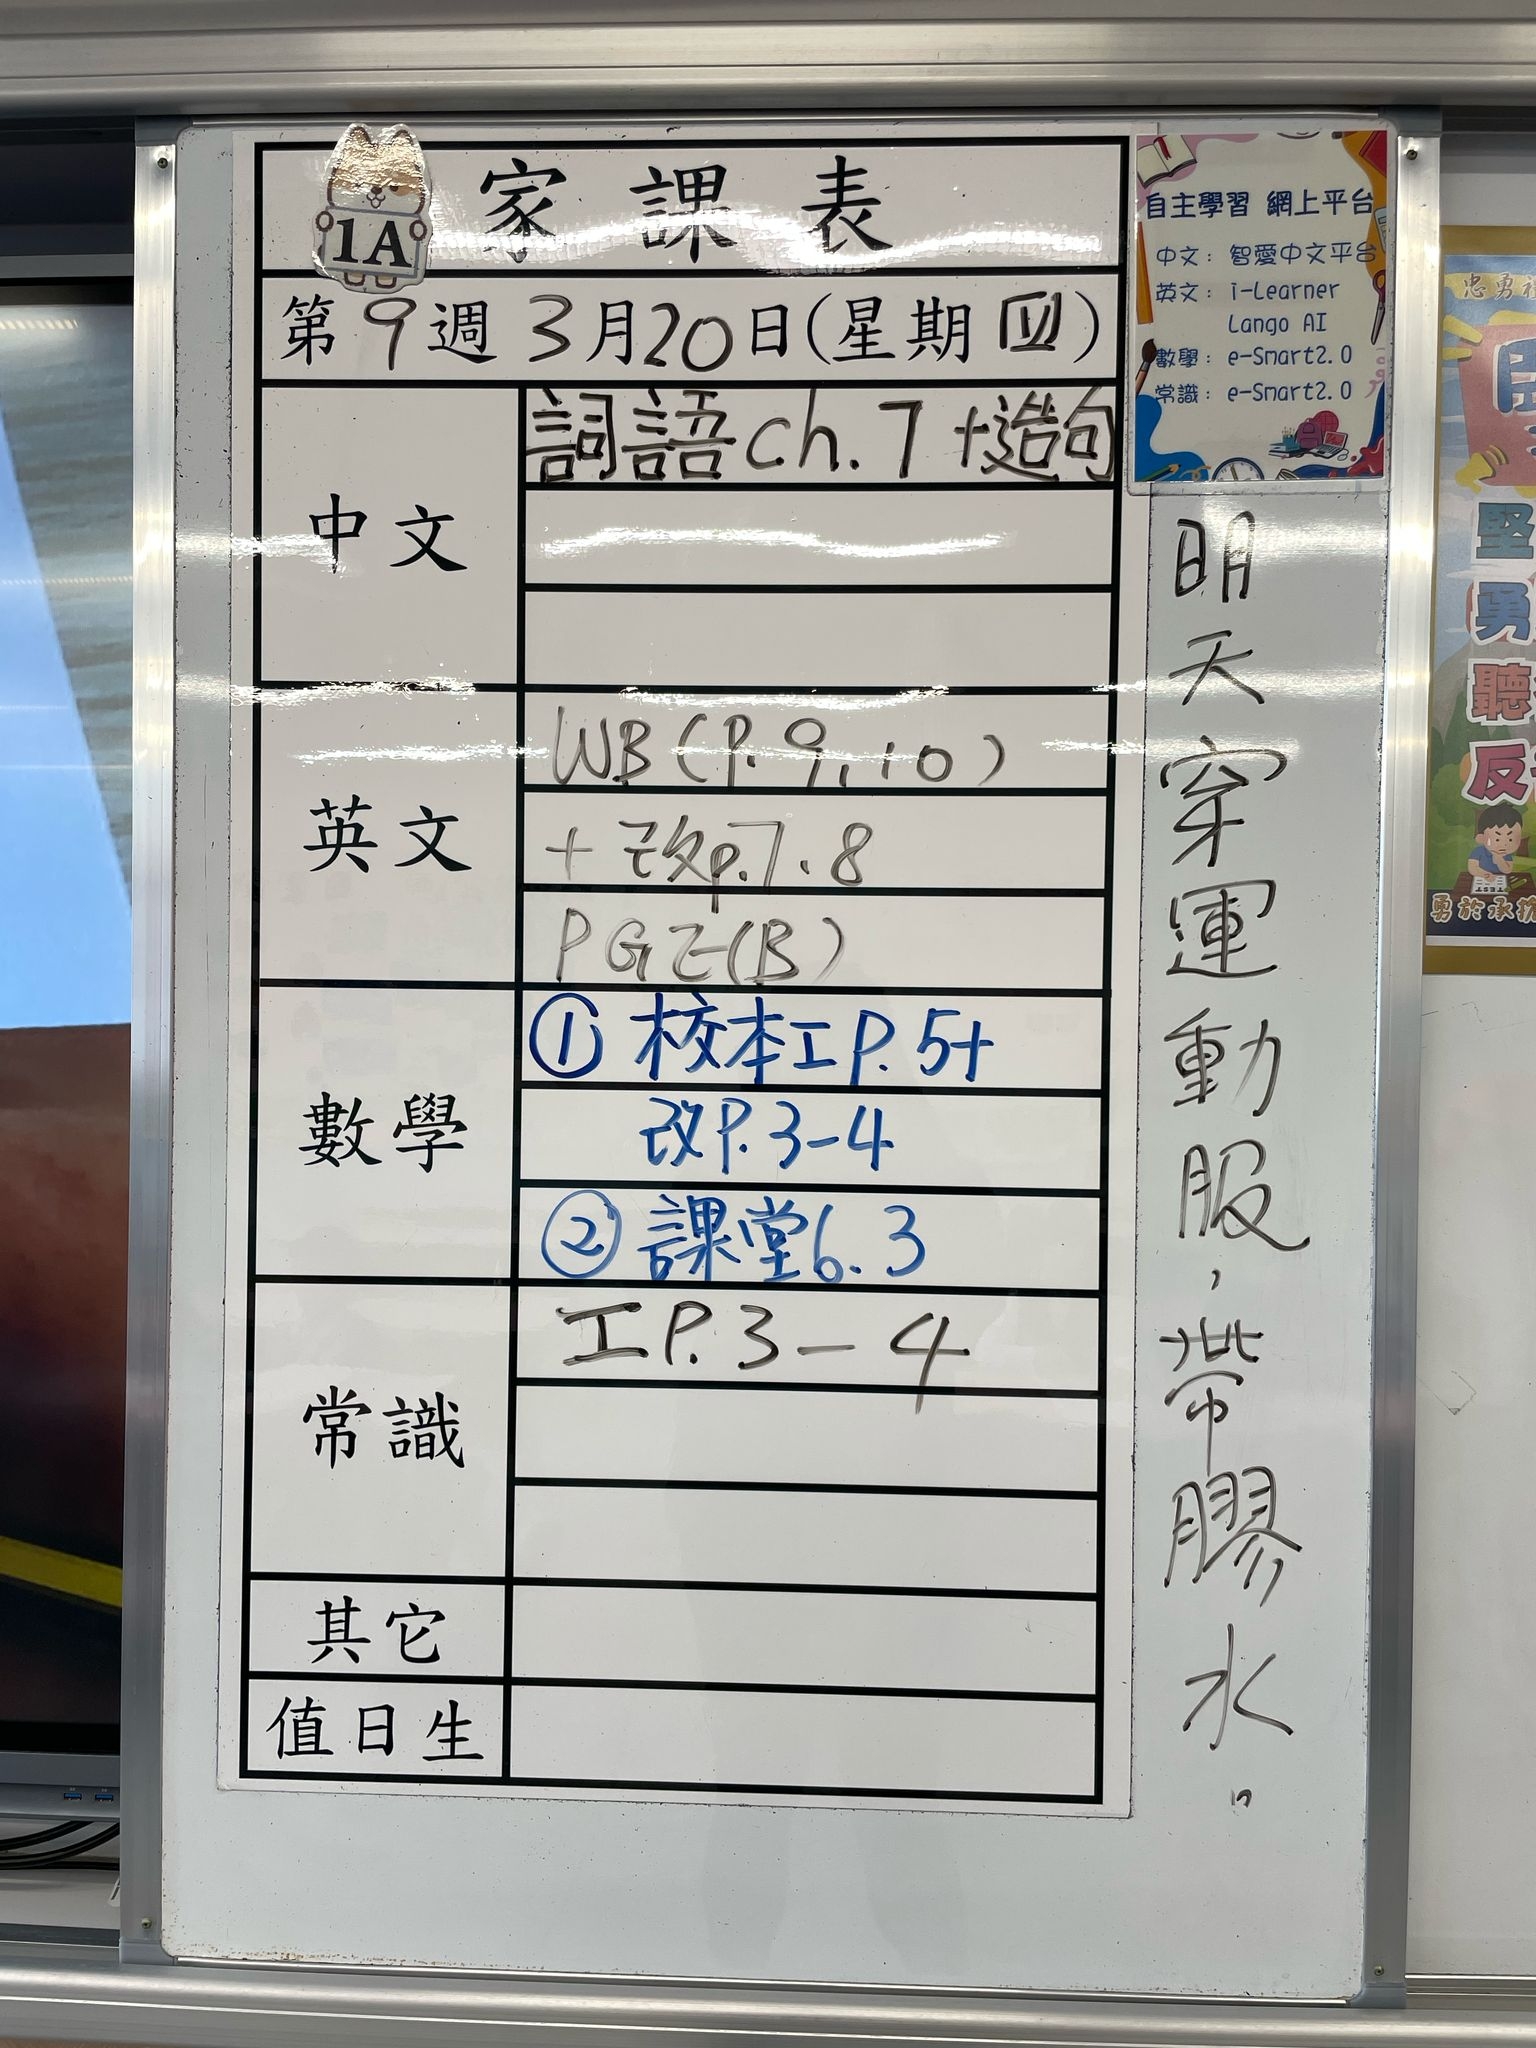 1A
家課表
第9週3月20日(星期四)
中文
詞語ch.7+造句
英文
WB(P.9,10)
+改p.7.8
PGE(B)
數學
① 校本工P.5+
改P.3-4
② 課堂6.3
常識
工P.3-4
其它
值日生
自主學習 網上平台
中文：智愛中文平台
英文：i-Learner
Lango AI
數學：e-Smart2.0
常識：e-Smart2.0
明天穿運動服，帶膠水。
忠勇
堅
勇
聽
反
勇於承擔